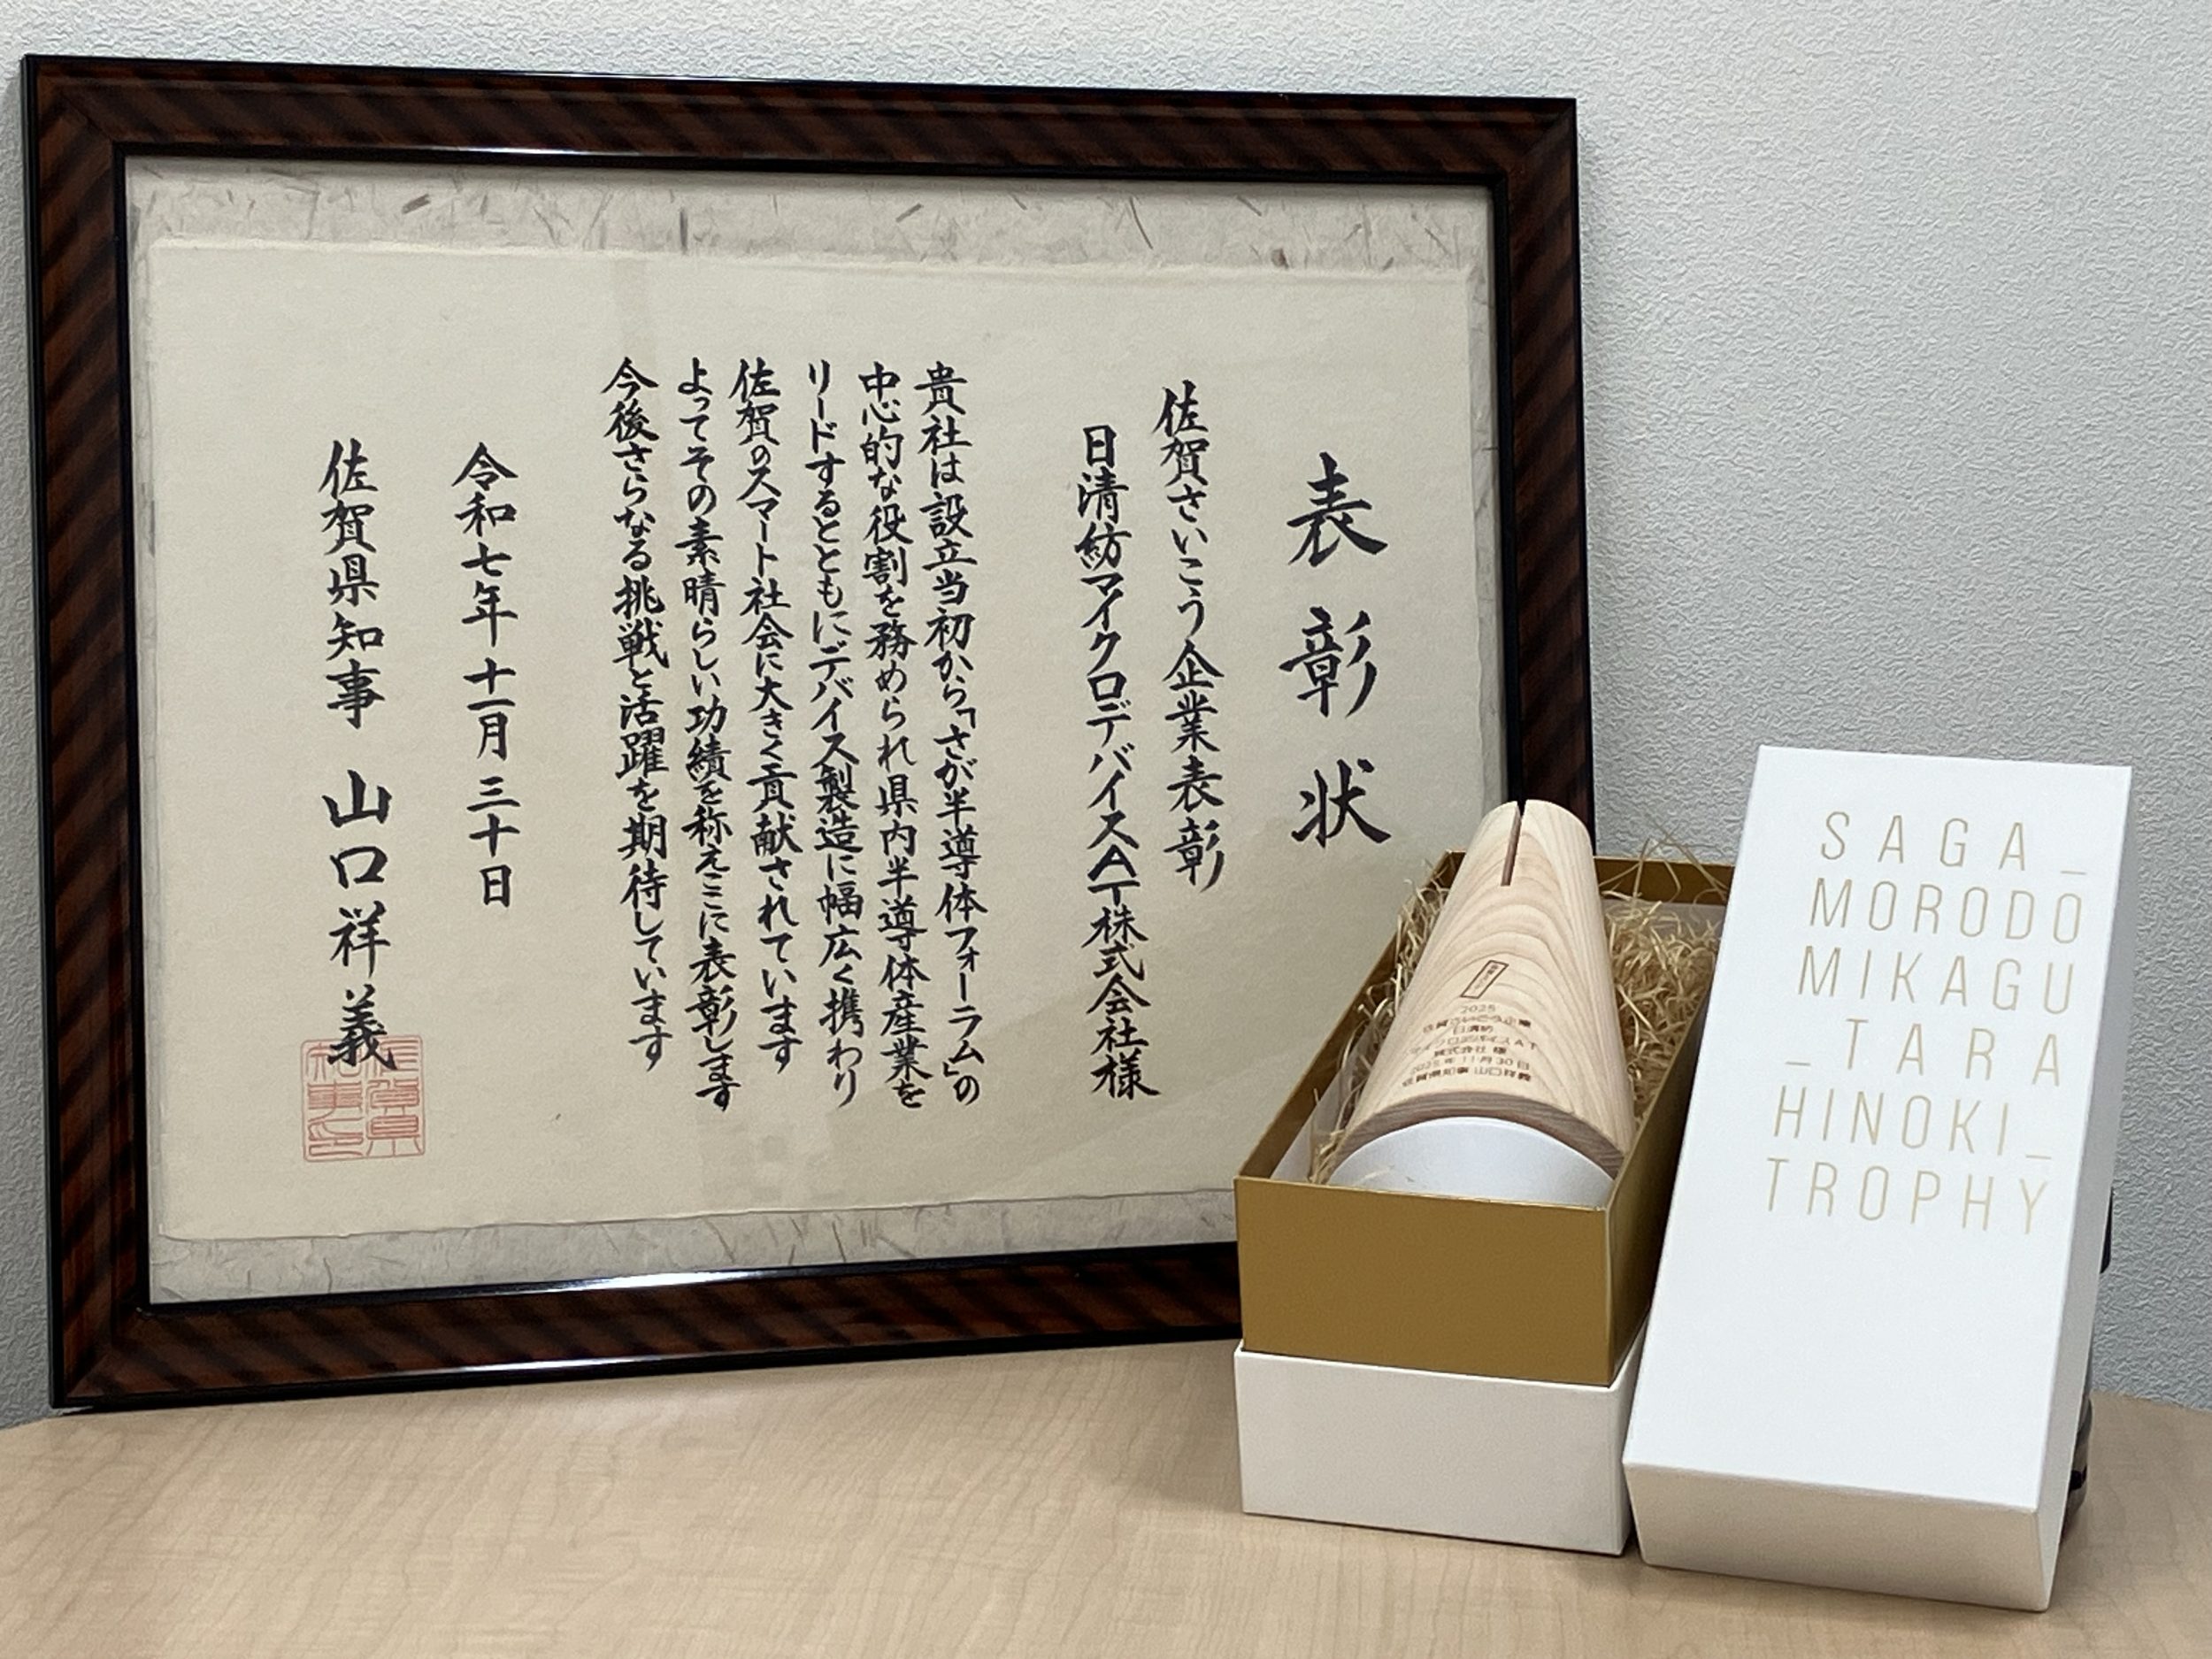 表彰状
佐賀さいこう企業表彰
日清紡マイクロデバイスAT株式会社様
貴社は設立当初から「さが半導体フォーラム」の
中心的な役割を務められ県内半導体産業を
リードするとともにデバイス製造に幅広く携わり
佐賀のスマート社会に大きく貢献されています
よってその素晴らしい功績を称えここに表彰します
今後さらなる挑戦と活躍を期待しています
令和七年十一月三十日
佐賀県知事 山口祥義
佐賀県
知事之印
2025
佐賀さいこう企業
日清紡
マイクロデバイスAT
株式会社 様
2025年11月30日
佐賀県知事 山口祥義
SAGA_
MORODO
MIKAGU
_TARA
_HINOKI_
TROPHY